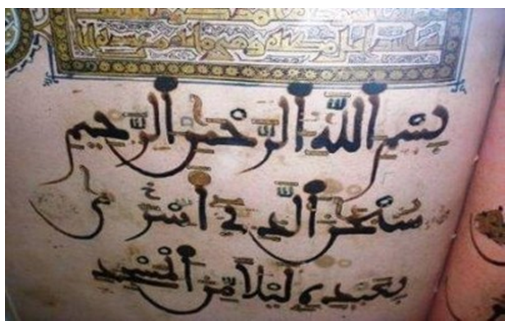 بِسْمِ اللَّهِ الرَّحْمَنِ الرَّحِيمِ
سُبْحَنَ الَّذِي أَسْرَى
بِعَبْدِهِ لَيْلًا مِّنَ الْمَسْجِدِ